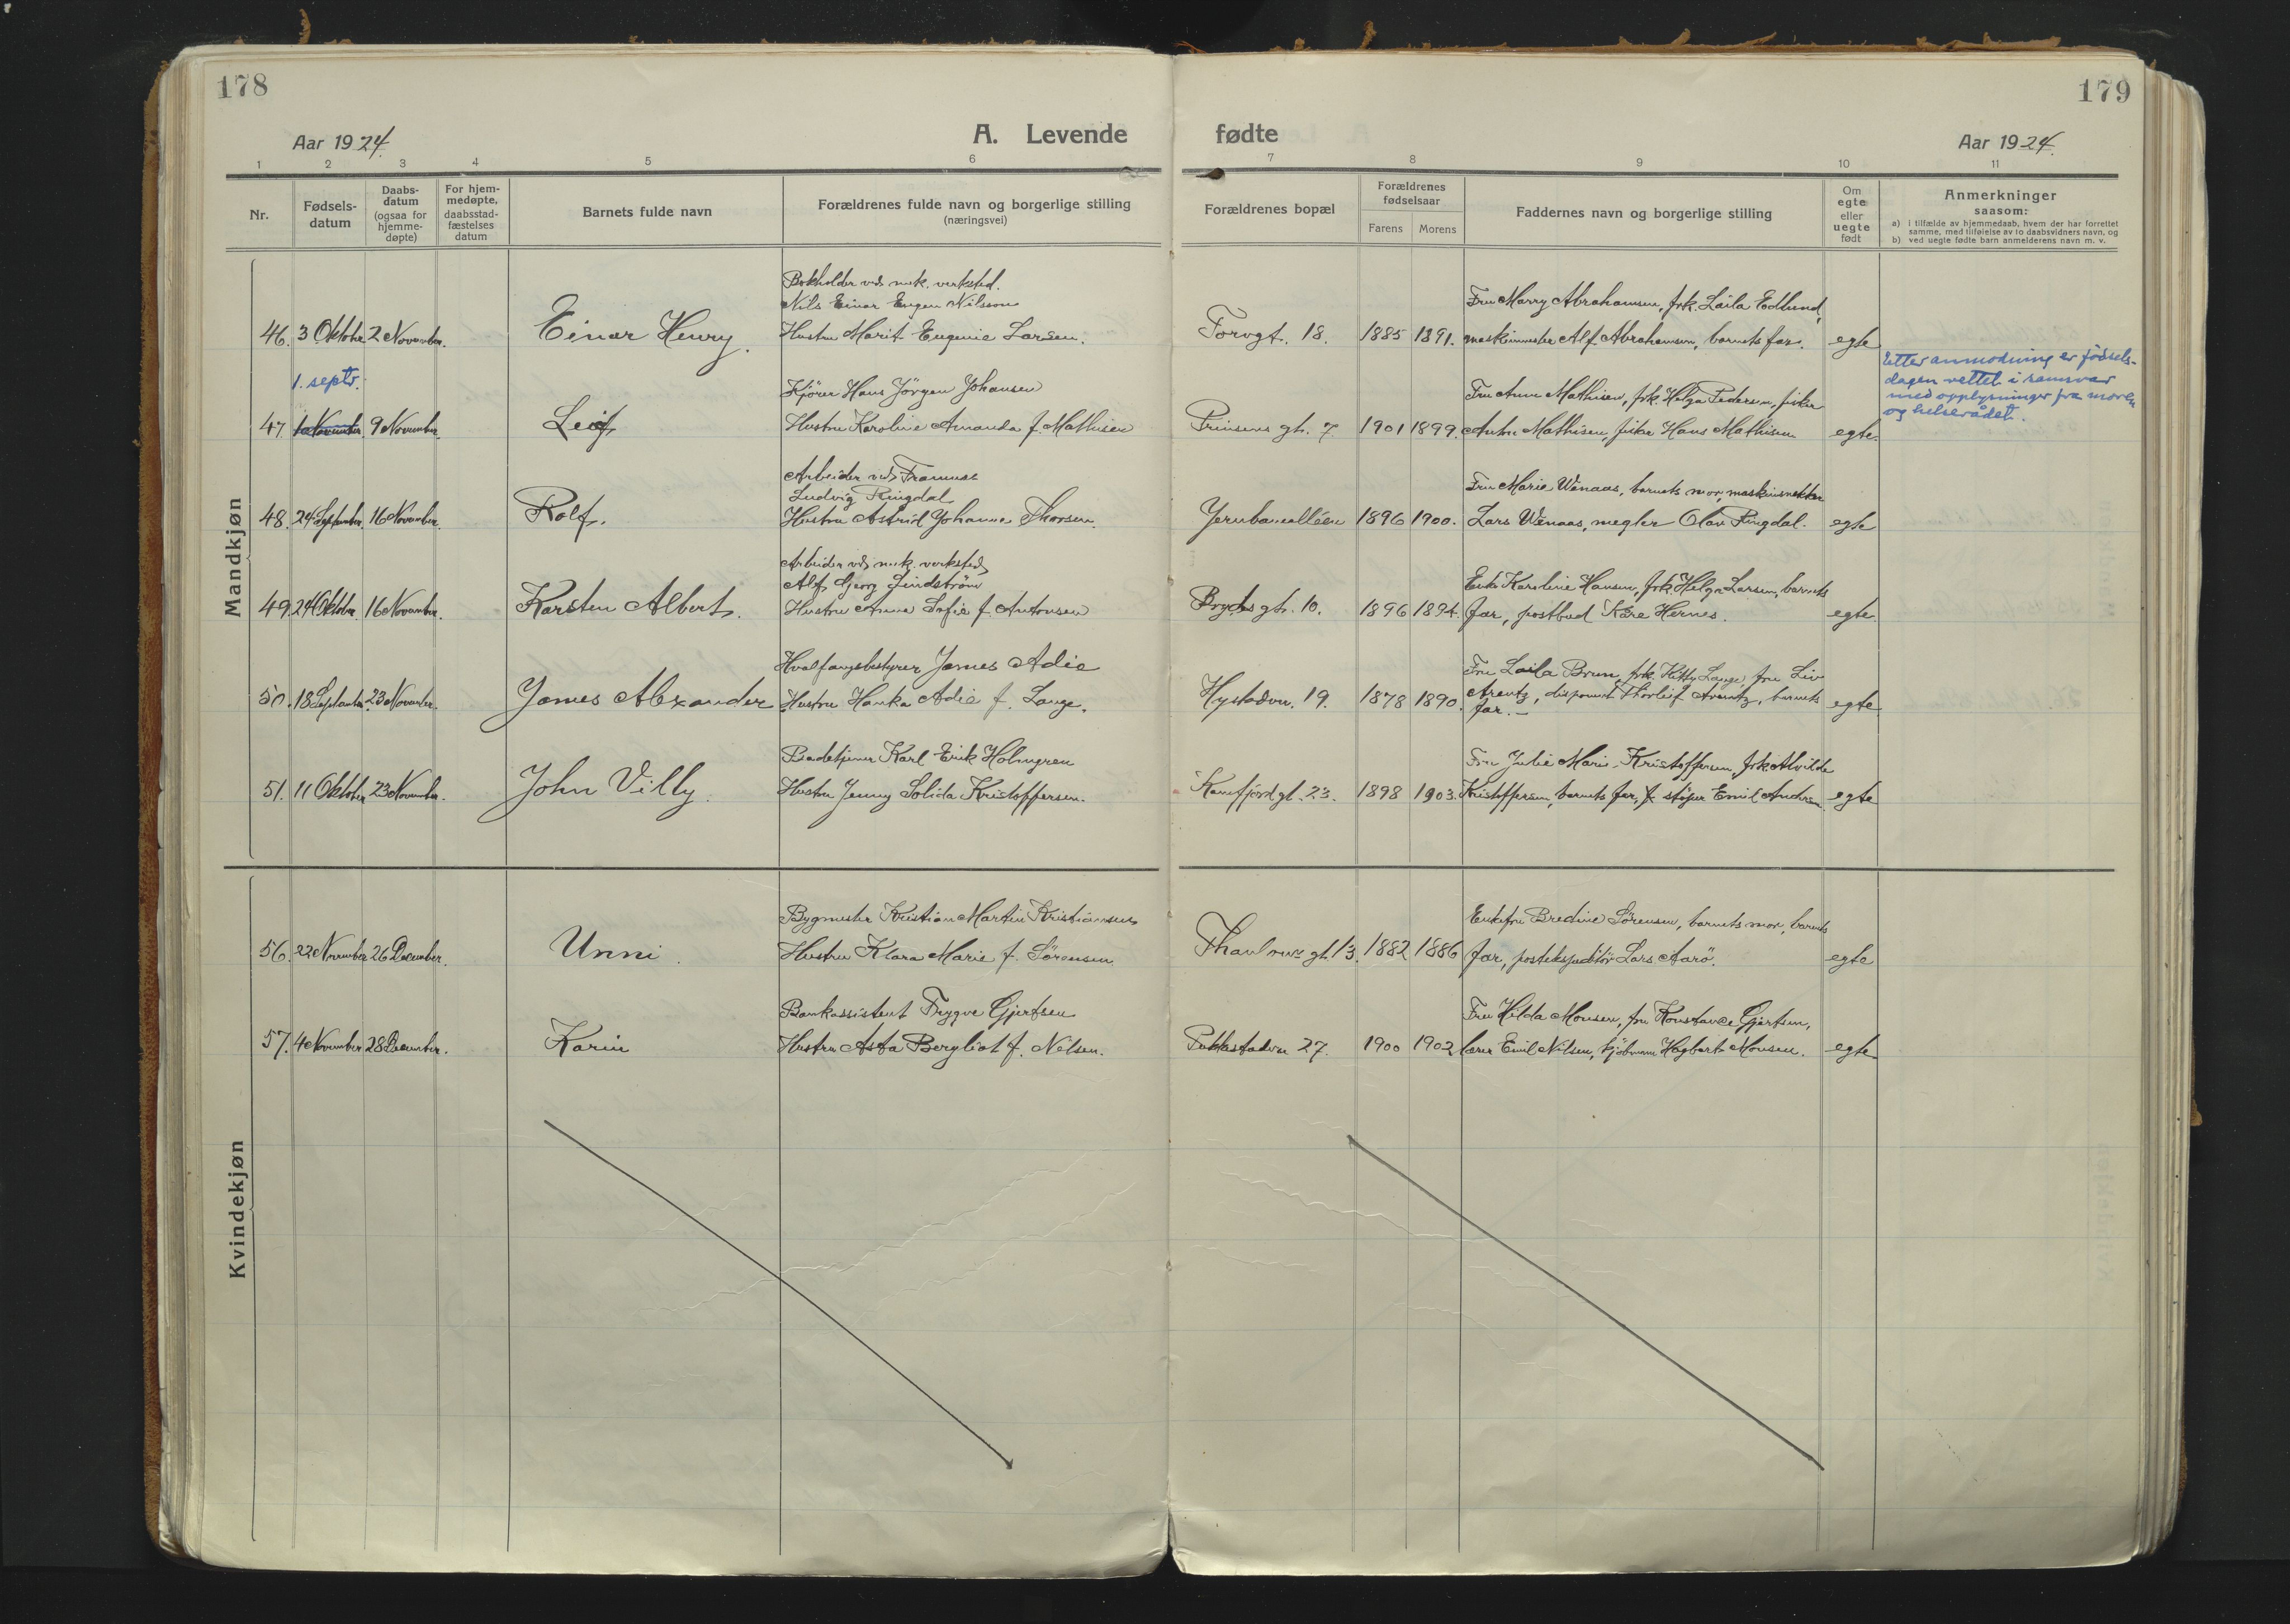 178
179
Aar 1924.
A. Levende fødte
Aar 1924.
1 2 3 4 5 6 7 8 9 10 11
Nr.
Fødsels-
datum
Daabs-
datum
(ogsaa for
hjemme-
døpte)
For hjem-
medøpte,
daabsstad-
fæstelses
datum
Barnets fulde navn
Forældrenes fulde navn og borgerlige stilling
(næringsvei)
Forældrenes bopæl
Forældrenes
fødselsaar
Farens Morens
Faddernes navn og borgerlige stilling
Om
egte
eller
uegte
født
Anmerkninger
saasom:
a) i tilfælde av hjemmedaab, hvem der har forrettet
samme, med tilføielse av to daabsvidners navn, og
b) ved uegte fødte barn anmelderens navn m. v.
Mandkjøn
46. 3 Oktober 2 November.
Einar Henry.
Bokholder ved mek. verksted.
Nils Einar Eugen Nilsson
Hustru Marit Eugenie Larsen.
Torvgt. 18.
1885 1891.
Fru Marry Abrahamsen, frk. Laila Eodlund,
maskinmester Alf Abrahamsen, barnets far.
egte
1. septr.
47. 1 November 9 November.
Leif
Kjører Hans Jörgen Johansen
Hustru Karoline Amanda f. Mathisen
Prinsens gt. 7.
1901 1899.
Fru Anna Mathisen, frk. Helga Pedersen, fisker
Anton Mathisen, fisker Hans Mathisen
egte.
Etter anmodning er fødsels-
dagen rettet i samsvar
med opplysninger fra moren
og helserådet.
48. 24 September. 16 November.
Rolf.
Arbeider ved Framnæs
Ludvig Ringdal
Hustru Astrid Johanne Thorsen.
Jernbanealléen
1896 1900.
Fru Marie Wenaas, barnets mor, maskinsnekker
Lars Wenaas, megler Olav Ringdal.
egte
49. 24 Oktober. 16 November.
Karsten Albert.
Arbeider ved mek. verksted
Alf Georg Lindström
Hustru Anna Sofie f. Antonsen
Brydes gt. 10.
1896 1894.
Enke Karoline Hansen, frk. Helga Larsen, barnets
far, postbud Kåre Hernes.
egte
50. 18 September 23 November.
James Alexander
Hvalfangstbestyrer James Adie
Hustru Hanka Adie f. Lange.
Hystadvn. 19.
1878 1890.
Fru Laila Brun, frk. Kitty Lange, fru Liv
Arentz, disponent Thorleif Arentz, barnets
far.
egte
51. 11 Oktober 23 November.
John Villy.
Badetjener Karl Erik Holmgren
Hustru Jenny Solida Kristoffersen.
Kamfjordgt. 23.
1898 1903.
Fru Julie Marie Kristoffersen, frk Alvilde
Kristoffersen, barnets far, støper Emil Andersen
egte
Kvindekjøn
56. 22 November 26 December.
Unni.
Bygmester Kristian Martin Kristiansen
Hustru Klara Marie f. Sörensen
Thaulows gt. 13.
1882 1886
Enkefru Bredine Sörensen, barnets mor, barnets
far, postekspeditör Lars Aarö.
egte
57. 4 November 28 December.
Karin
Bankassistent Trygve Gjertsen
Hustru Asta Bergliot f. Nilsen.
Pukkestadvn 27.
1900 1902
Fru Hilda Monsen, fru Konstance Gjertsen,
lærer Emil Nilsen, kjöbmann Hagbart Monsen.
egte